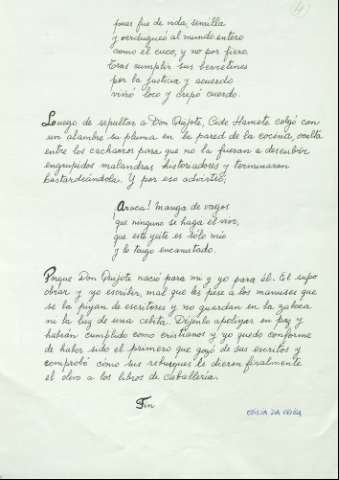 pues fue de vida sencilla
y verdugueó al mundo entero
como el cuco, y no por fiero.
Tras cumplir sus berretines
por la justicia y acuerdo
vivió loco y crepó cuerdo.
Luego de sepultar a Don Quijote, Cide Hamete colgó con
un alambre su pluma en la pared de la cocina, oculta
entre los cacharros para que no la fueran a descubrir
engrupidos malandras historiadores y terminaran
bastardeándola. Y por eso advirtió:
¡Araca! Manga de vagos
que ninguno se haga el vivo,
que este yeite es sólo mío
y lo tengo encanutado.
Porque Don Quijote nació para mí y yo para él. El supo
obrar y yo escribir, mal que les pese a los manuses que
se la piyan de escritores y no guardan en la zabeca
ni la luz de una cebita. Déjenlo apoliyar en paz y
habrán cumplido como cristianos y yo quedo conforme
de haber sido el primero que gozó de sus escritos y
comprobó cómo sus rebusques le dieron finalmente
el olivo a los libros de caballería.
Fin